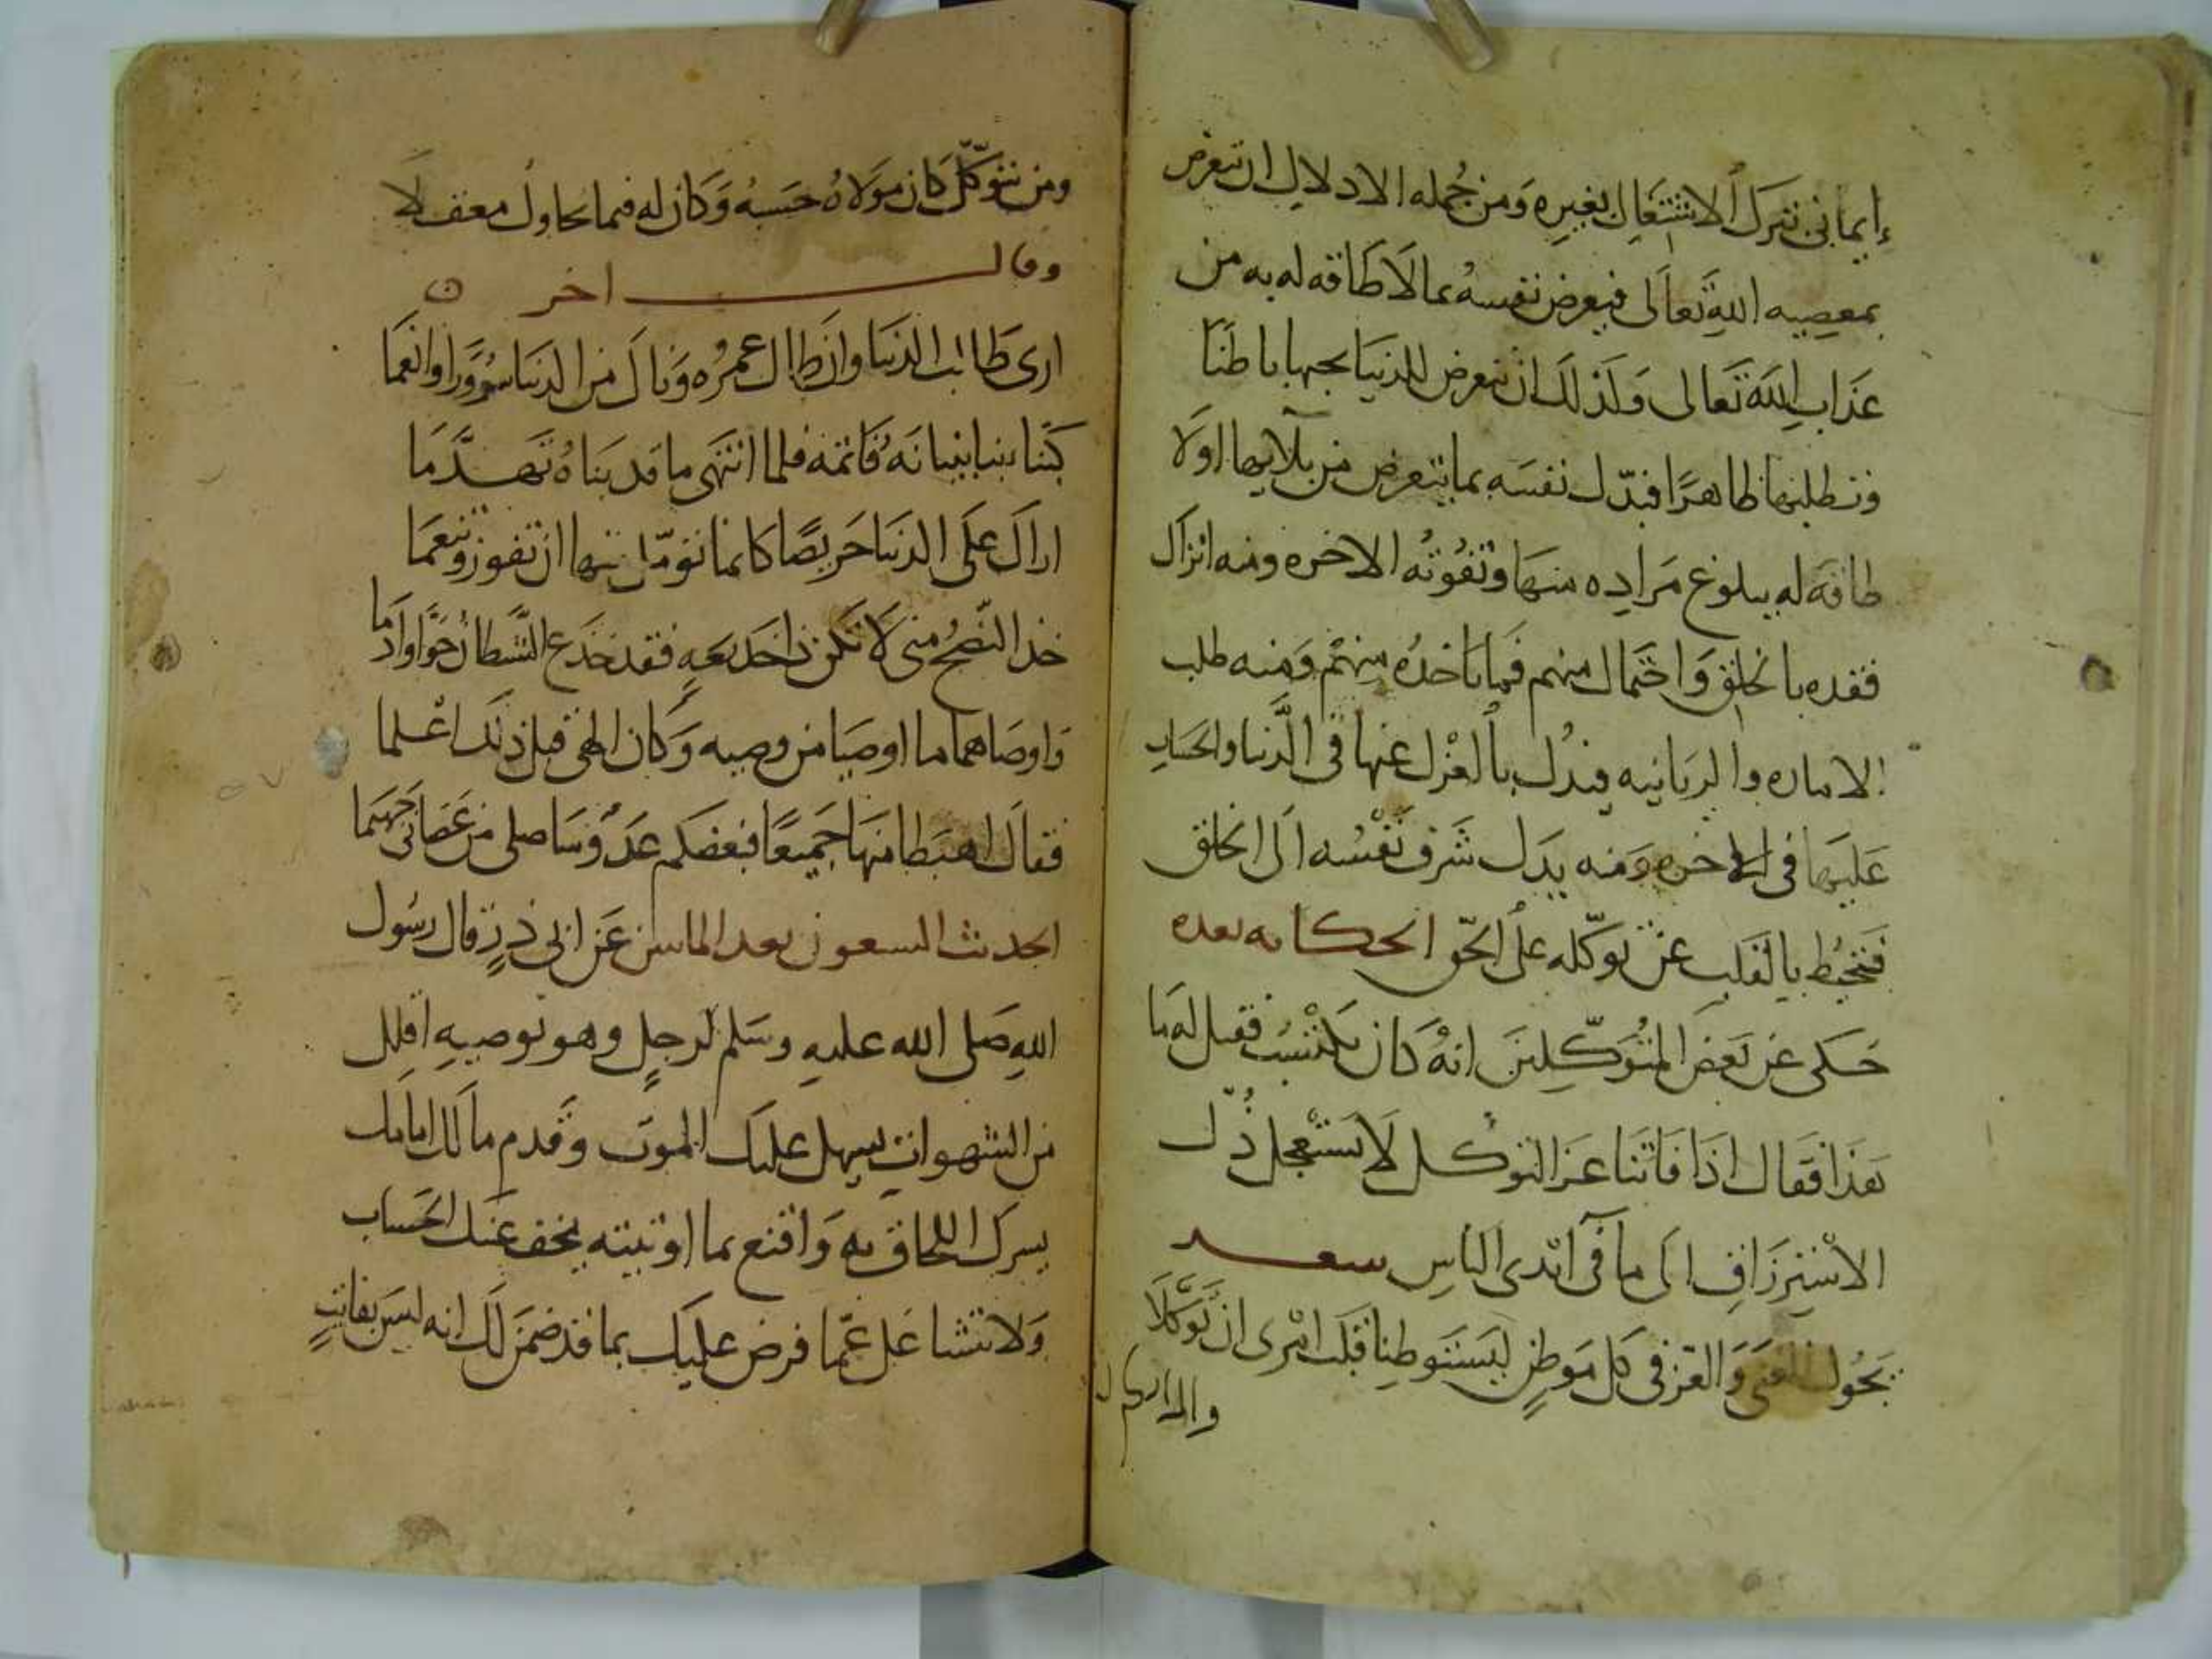 إيماني بترك الاشتغال بغيره ومن جمله الادلال ان تتعرض
بمعصيه الله تعالى فيعرض نفسه بما لا طاقه له به من
عذاب الله تعالى وكذلك ان تتعرض للدنيا بحبها باطنا
وتطلبها ظاهرا فيذل نفسه بما يتعرض من بلايها اولا
طاقه له ببلوغ مراده منها وتفوته الاخره ومنه انزال
فقده بالخلق واحتمال منهم فيما ياخذه منهم ومنه طلب
الاماره والربانيه فيذل بالعزل عنها في الدنيا والحساب
عليها في الاخره ومنه يذل شرف نفسه الى الخلق
فتحيط بالقلب عن توكله على الحق الحكايه بعده
حكى عن بعض المتوكلين انه كان يكتسب فقيل له ما
هذا فقال اذا فاتنا عز التوكل لا نستعجل ذل
الاستيزاف الى ما في ايدي الناس شعر
يجول الغنى والعز في كل موطن ليستوطنا قلب امرى ان توكلا
ومن يتوكل كان مولاه حسبه وكان له فيما يحاول معقلا
وقال اخر
ارى طالب الدنيا وان طال عمره ونال من الدنيا سرورا وانعما
كبنا بنا بنيانه فاتمه فلما انتهى ما قد بناه تهدما
اراك على الدنيا حريصا كانما تؤمل تنهها ان تفوز وتنعما
خذ النصح مني لا تكن ذا خديعه فقد خدع الشيطان حوا وادما
واوصاهما ما اوصيا من وصيه وكان الهي قبل ذلك اعلما
فقال اهبطا منها جميعا فبعضكم عدو وساصلي من عصاني جهنما
الحديث التسعون بعد الماىىن عن ابي ذر قال رسول
الله صلى الله عليه وسلم لرجل وهو يوصيه اقلل
من الشهوات يسهل عليك الموت وقدم مالك امامك
يسرك اللحاق به واقنع بما اوتيته يخف عنك الحساب
ولا تتشاغل عما فرض عليك بما قد ضمن لك انه ليس بفايت